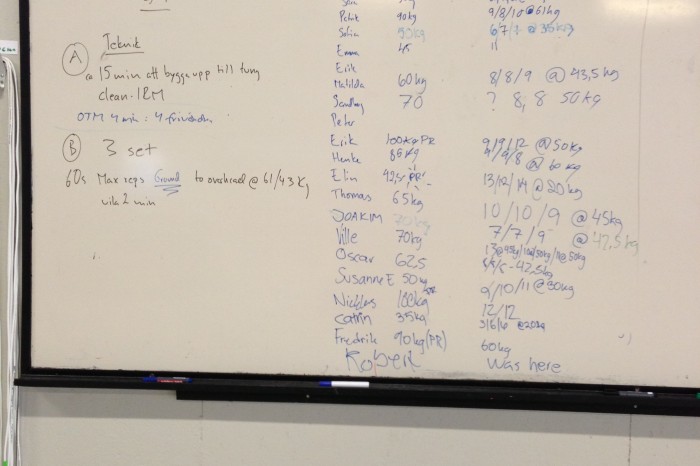 A Teknik
@ 15 min att bygga upp till tung
clean. 1RM
OTM 4 min : 4
B 3 set
60s Max reps Ground to overhead @ 61/43 Kg
vila 2 min
Patrik 90kg 9/8/10 @ 61kg
Sofia
Emma 45 11
Erik
Matilda 60kg 8/8/9 @ 43,5kg
70 ? 8, 8 50kg
Peter
Erik 100kg PR 9/9/12 @ 50kg
Henke 85kg /9/8 @ 60 kg
Elin 42,5 PR! 13/12/14 @ 20kg
Thomas 65kg
JOAKIM 10/10/9 @ 45kg
Ville 70kg 7/7/9 @ 42,5kg
Oscar 62,5
Susanne E 50kg 9/10/11 @ 30kg
Nicklas 100kg 12/12
Catrin 35kg 5/6/6 @ 20kg
Fredrik 90kg (PR) 60kg
Robert Was here